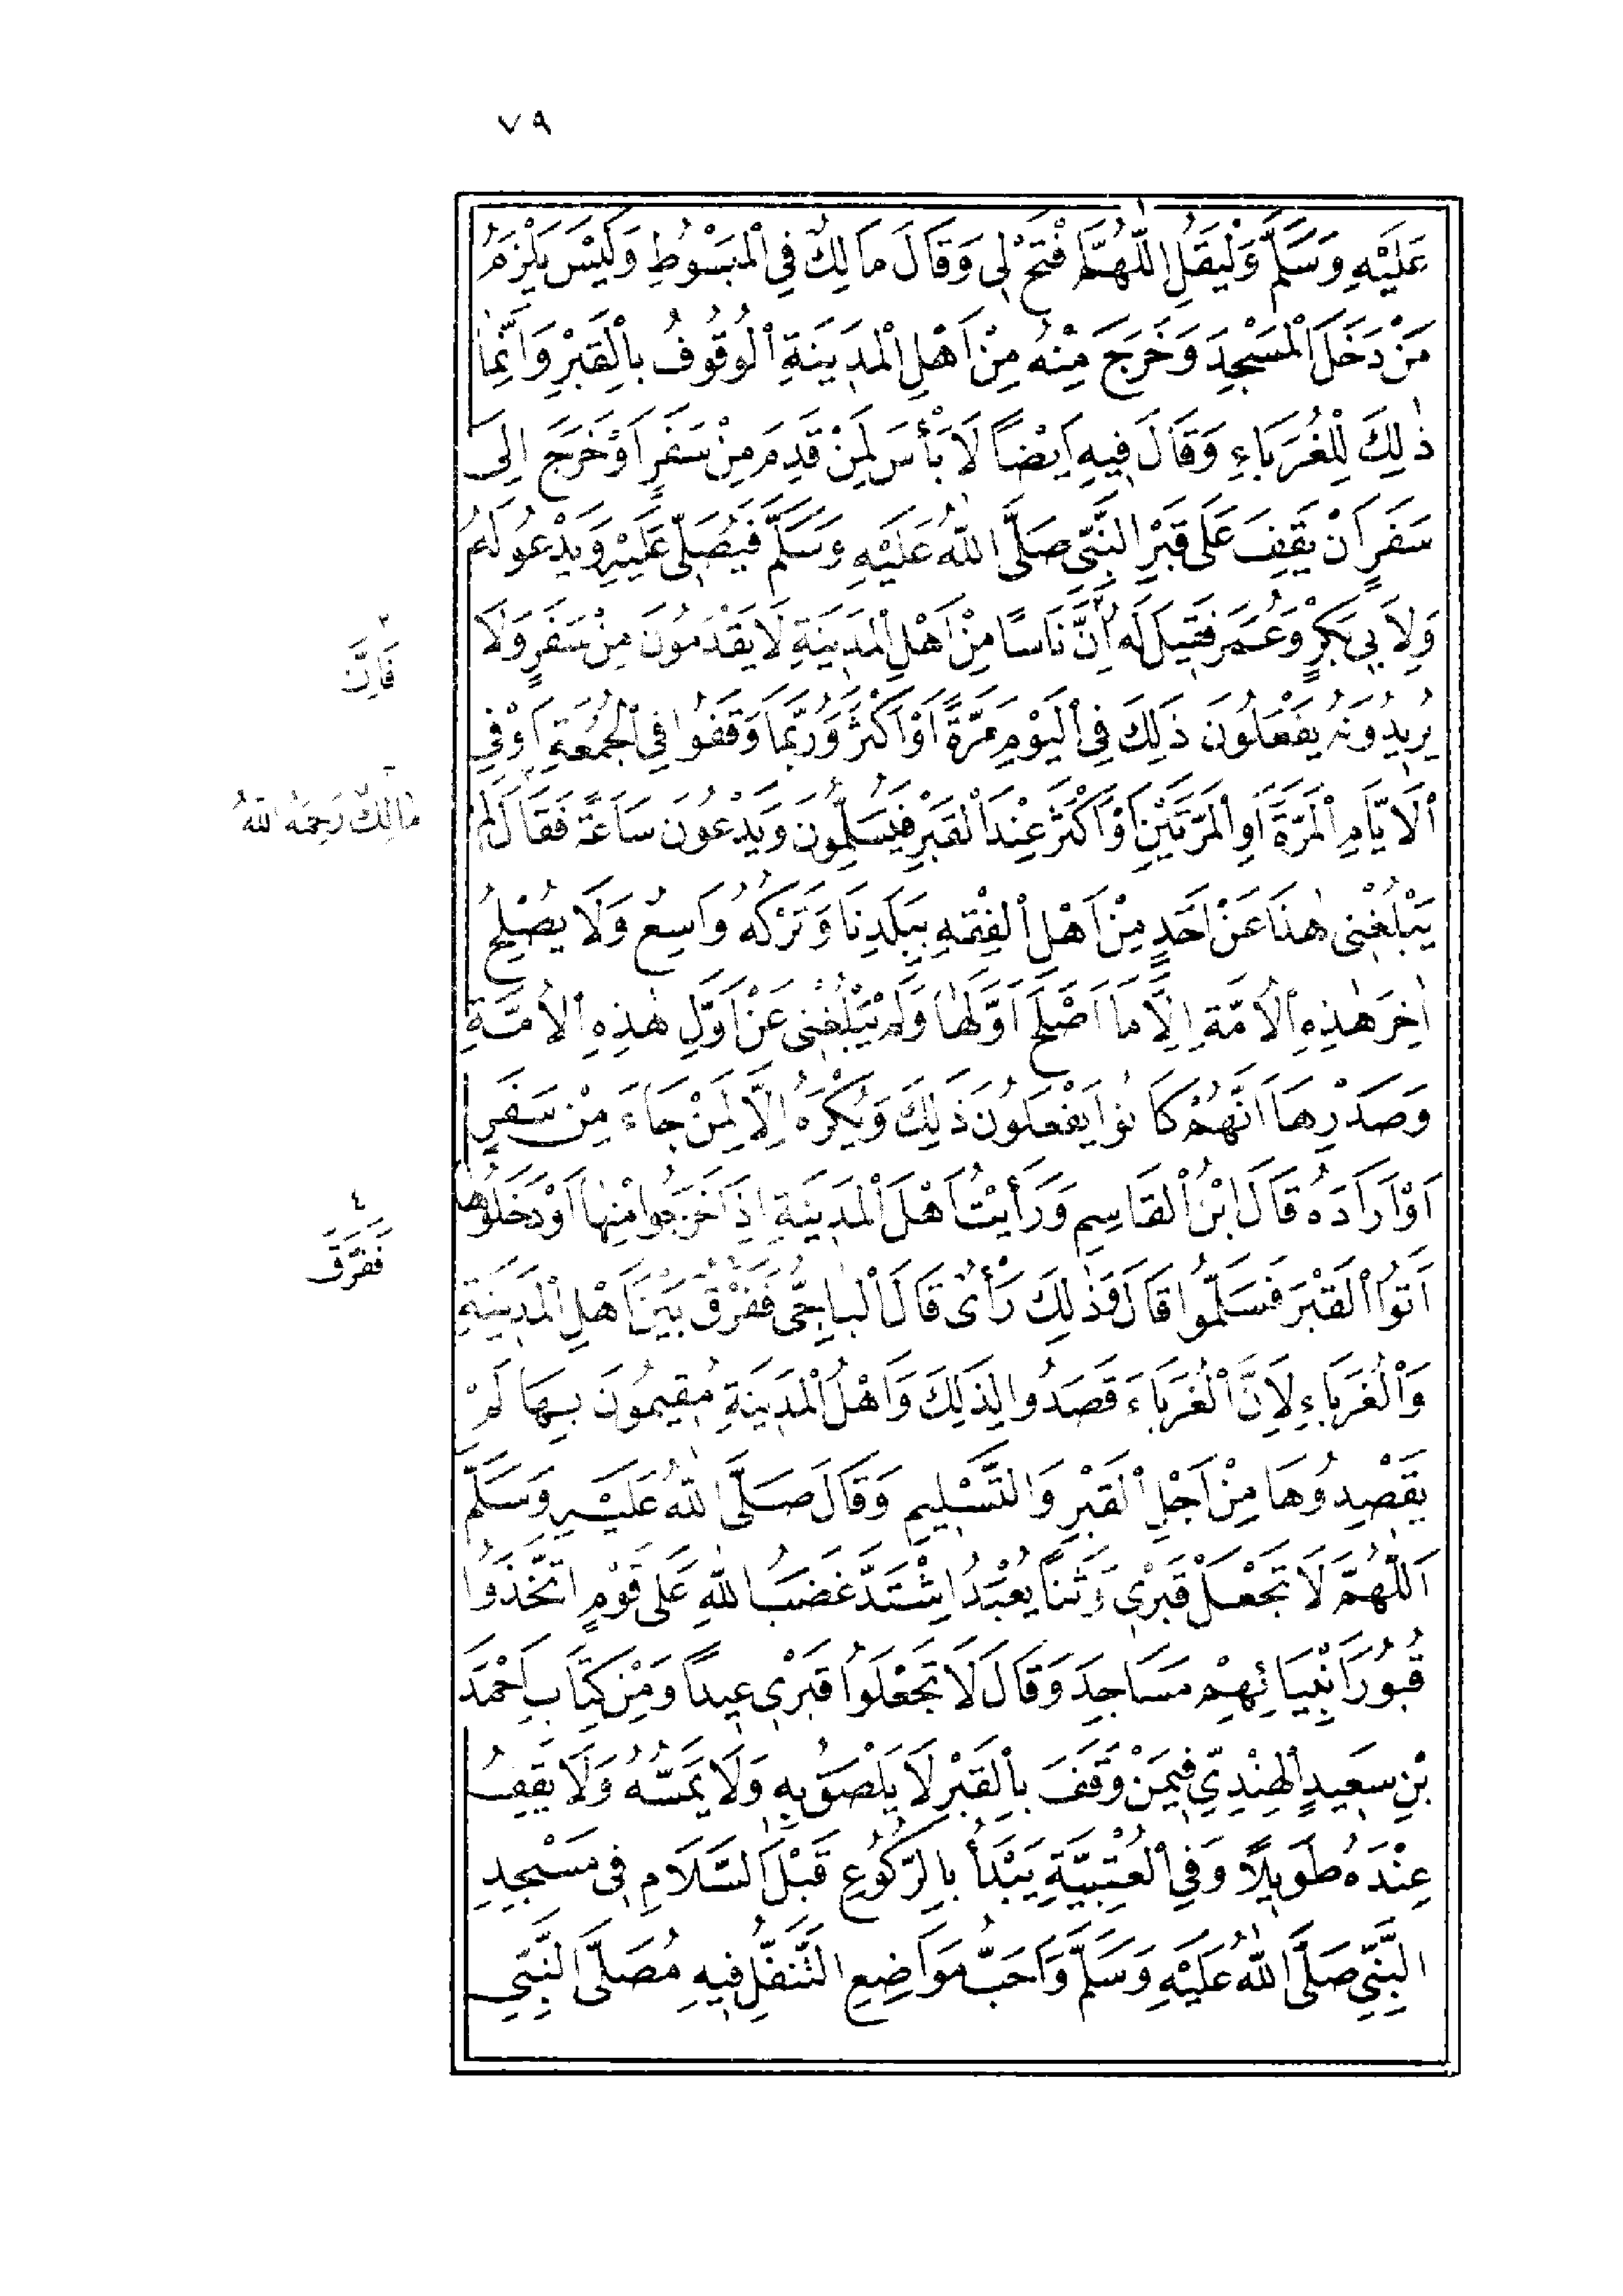 ٧٩
عَلَيْهِ وَسَلَّمَ وَلْيَقُلِ اللّٰهُمَّ افْتَحْ لِى وَقَالَ مَالِكٌ فِى الْمَبْسُوطِ وَلَيْسَ يَلْزَمُ
مَنْ دَخَلَ الْمَسْجِدَ وَخَرَجَ مِنْهُ مِنْ اَهْلِ الْمَدِينَةِ الْوُقُوفُ بِالْقَبْرِ وَاِنَّمَا
ذٰلِكَ لِلْغُرَبَاءِ وَقَالَ فِيهِ اَيْضاً لَا بَأْسَ لِمَنْ قَدِمَ مِنْ سَفَرٍ اَوْ خَرَجَ اِلَى
سَفَرٍ اَنْ يَقِفَ عَلَى قَبْرِ النَّبِىِّ صَلَّى اللّٰهُ عَلَيْهِ وَسَلَّمَ فَيُصَلِّى عَلَيْهِ وَيَدْعُوَ لَهُ
وَلِاَبِى بَكْرٍ وَعُمَرَ فَقِيلَ لَهُ اِنَّ نَاسًا مِنْ اَهْلِ الْمَدِينَةِ لَا يَقْدَمُونَ مِنْ سَفَرٍ وَلَا
يُرِيدُونَهُ يَفْعَلُونَ ذَلِكَ فِى الْيَوْمِ مَرَّةً اَوْ اَكْثَرَ وَرُبَّمَا وَقَفُوا فِى الْجُمُعَةِ اَوْ فِى
الْاَيَّامِ الْمَرَّةَ اَوِ الْمَرَّتَيْنِ اَوْ اَكْثَرَ عِنْدَ الْقَبْرِ فَيُسَلِّمُونَ وَيَدْعُونَ سَاعَةً فَقَالَ لَمْ
يَبْلُغْنِى هٰذَا عَنْ اَحَدٍ مِنْ اَهْلِ الْفِقْهِ بِبَلَدِنَا وَتَرْكُهُ وَاسِعٌ وَلَا يُصْلِحُ
اٰخِرَ هٰذِهِ الْاُمَّةِ اِلَّا مَا اَصْلَحَ اَوَّلَهَا وَلَمْ يَبْلُغْنِى عَنْ اَوَّلِ هٰذِهِ الْاُمَّةِ
وَصَدْرِهَا اَنَّهُمْ كَانُوا يَفْعَلُونَ ذَلِكَ وَيُكْرَهُ اِلَّا لِمَنْ جَاءَ مِنْ سَفَرٍ
اَوْ اَرَادَهُ قَالَ ابْنُ الْقَاسِمِ وَرَأَيْتُ اَهْلَ الْمَدِينَةِ اِذَا خَرَجُوا مِنْهَا اَوْ دَخَلُوهَا
اَتَوُا الْقَبْرَ فَسَلَّمُوا قَالَ وَذٰلِكَ رَأْىٌ قَالَ الْبَاجِىُّ فَفَرْقٌ بَيْنَ اَهْلِ الْمَدِينَةِ
وَالْغُرَبَاءِ لِاَنَّ الْغُرَبَاءَ قَصَدُوا لِذَلِكَ وَاَهْلُ الْمَدِينَةِ مُقِيمُونَ بِهَا لَمْ
يَقْصِدُوهَا مِنْ اَجْلِ الْقَبْرِ وَالتَّسْلِيمِ وَقَالَ صَلَّى اللّٰهُ عَلَيْهِ وَسَلَّمَ
اَللّٰهُمَّ لَا تَجْعَلْ قَبْرِى وَثَناً يُعْبَدُ اِشْتَدَّ غَضَبُ اللّٰهِ عَلَى قَوْمٍ اتَّخَذُوا
قُبُورَ اَنْبِيَائِهِمْ مَسَاجِدَ وَقَالَ لَا تَجْعَلُوا قَبْرِى عِيداً وَمِنْ كِتَابِ اَحْمَدَ
بْنِ سَعِيدٍ الْهِنْدِىِّ فِيمَنْ وَقَفَ بِالْقَبْرِ لَا يَلْصَقُ بِهِ وَلَا يَمَسُّهُ وَلَا يَقِفُ
عِنْدَهُ طَوِيلًا وَفِى الْعُتْبِيَّةِ يَبْدَأُ بِالرُّكُوعِ قَبْلَ السَّلَامِ فِى مَسْجِدِ
النَّبِىِّ صَلَّى اللّٰهُ عَلَيْهِ وَسَلَّمَ وَاَحَبُّ مَوَاضِعِ التَّنَفُّلِ فِيهِ مُصَلَّى النَّبِىِّ
فَاِنَّ
مَالِكٌ رَحِمَهُ اللّٰهُ
٤
فَفَرَّقَ